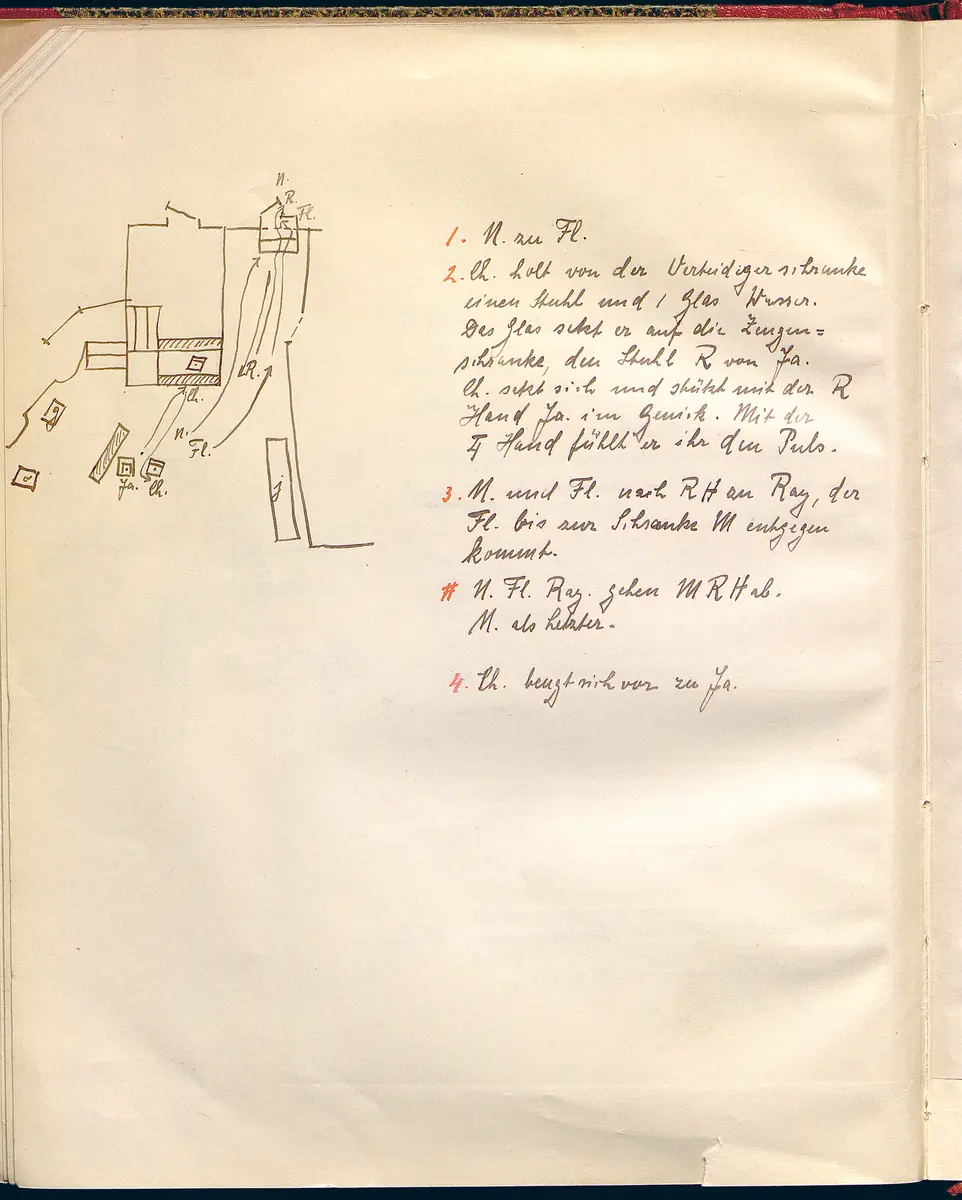 N.
R.
Fl.
R.
Ch.
N.
Fl.
Ja.
Ch.
1. N. zu Fl.
2. Ch. holt von der Verteidigerschranke
einen Stuhl und 1 Glas Wasser.
Das Glas setzt er auf die Zeugen=
schranke, den Stuhl R von Ja.
Ch. setzt sich und stützt mit der R
Hand Ja. im Genick. Mit der
L Hand fühlt er ihr den Puls.
3. N. und Fl. nach R H an Ray, der
Fl. bis zur Schranke M entgegen
kommt.
# N. Fl. Ray. gehen M R H ab.
N. als Letzter.
4. Ch. beugt sich vor zu Ja.